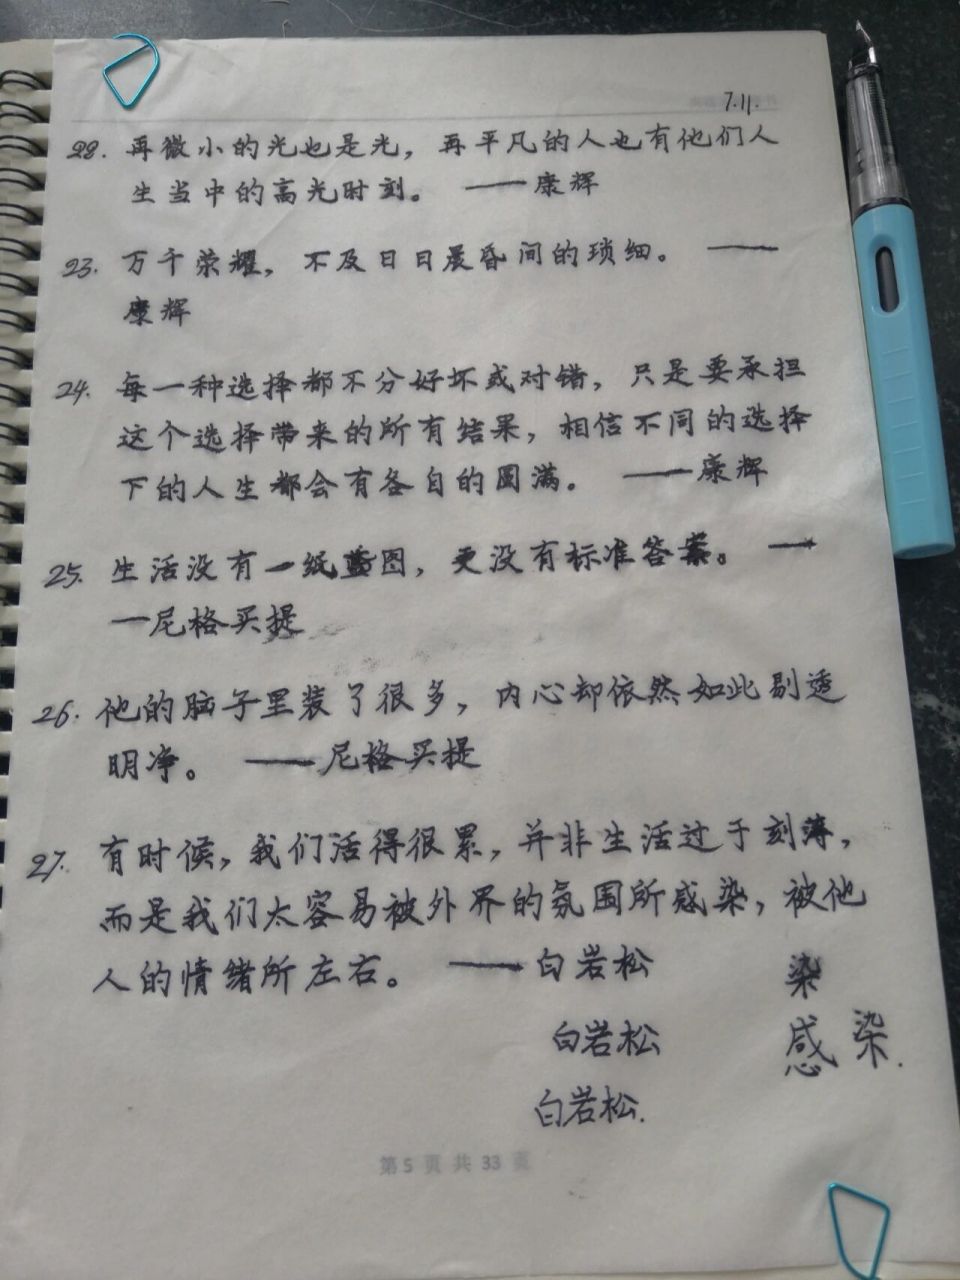 7.11.
22. 再微小的光也是光，再平凡的人也有他们人
生当中的高光时刻。 ——康辉
23. 万千荣耀，不及日日晨昏间的琐细。 ——
康辉
24. 每一种选择都不分好坏或对错，只是要承担
这个选择带来的所有结果，相信不同的选择
下的人生都会有各自的圆满。 ——康辉
25. 生活没有一纸蓝图，更没有标准答案。 —
—尼格买提
26. 他的脑子里装了很多，内心却依然如此剔透
明净。 ——尼格买提
27. 有时候，我们活得很累，并非生活过于刻薄，
而是我们太容易被外界的氛围所感染，被他
人的情绪所左右。 ——白岩松
染
白岩松 感染.
白岩松.
第 5 页 共 33 页